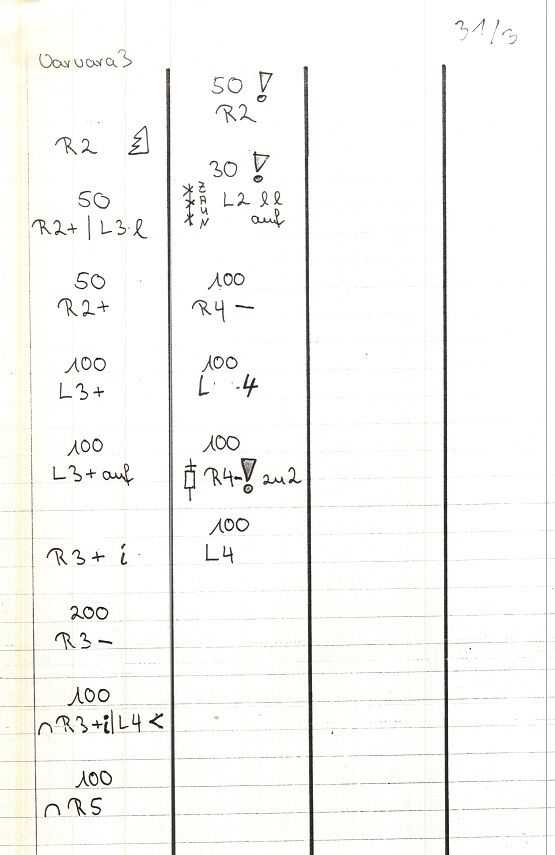 31/3
Varvara 3
R2
50
R2+ | L3 l
50
R2+
100
L3+
100
L3+ auf
R3+ i
200
R3 -
100
∩ R3+i|L4 <
100
∩ R5
50 !
R2
30 !
ZAUN L2 ll
auf
100
R4 -
100
L 4
100
R4-! zu 2
100
L4